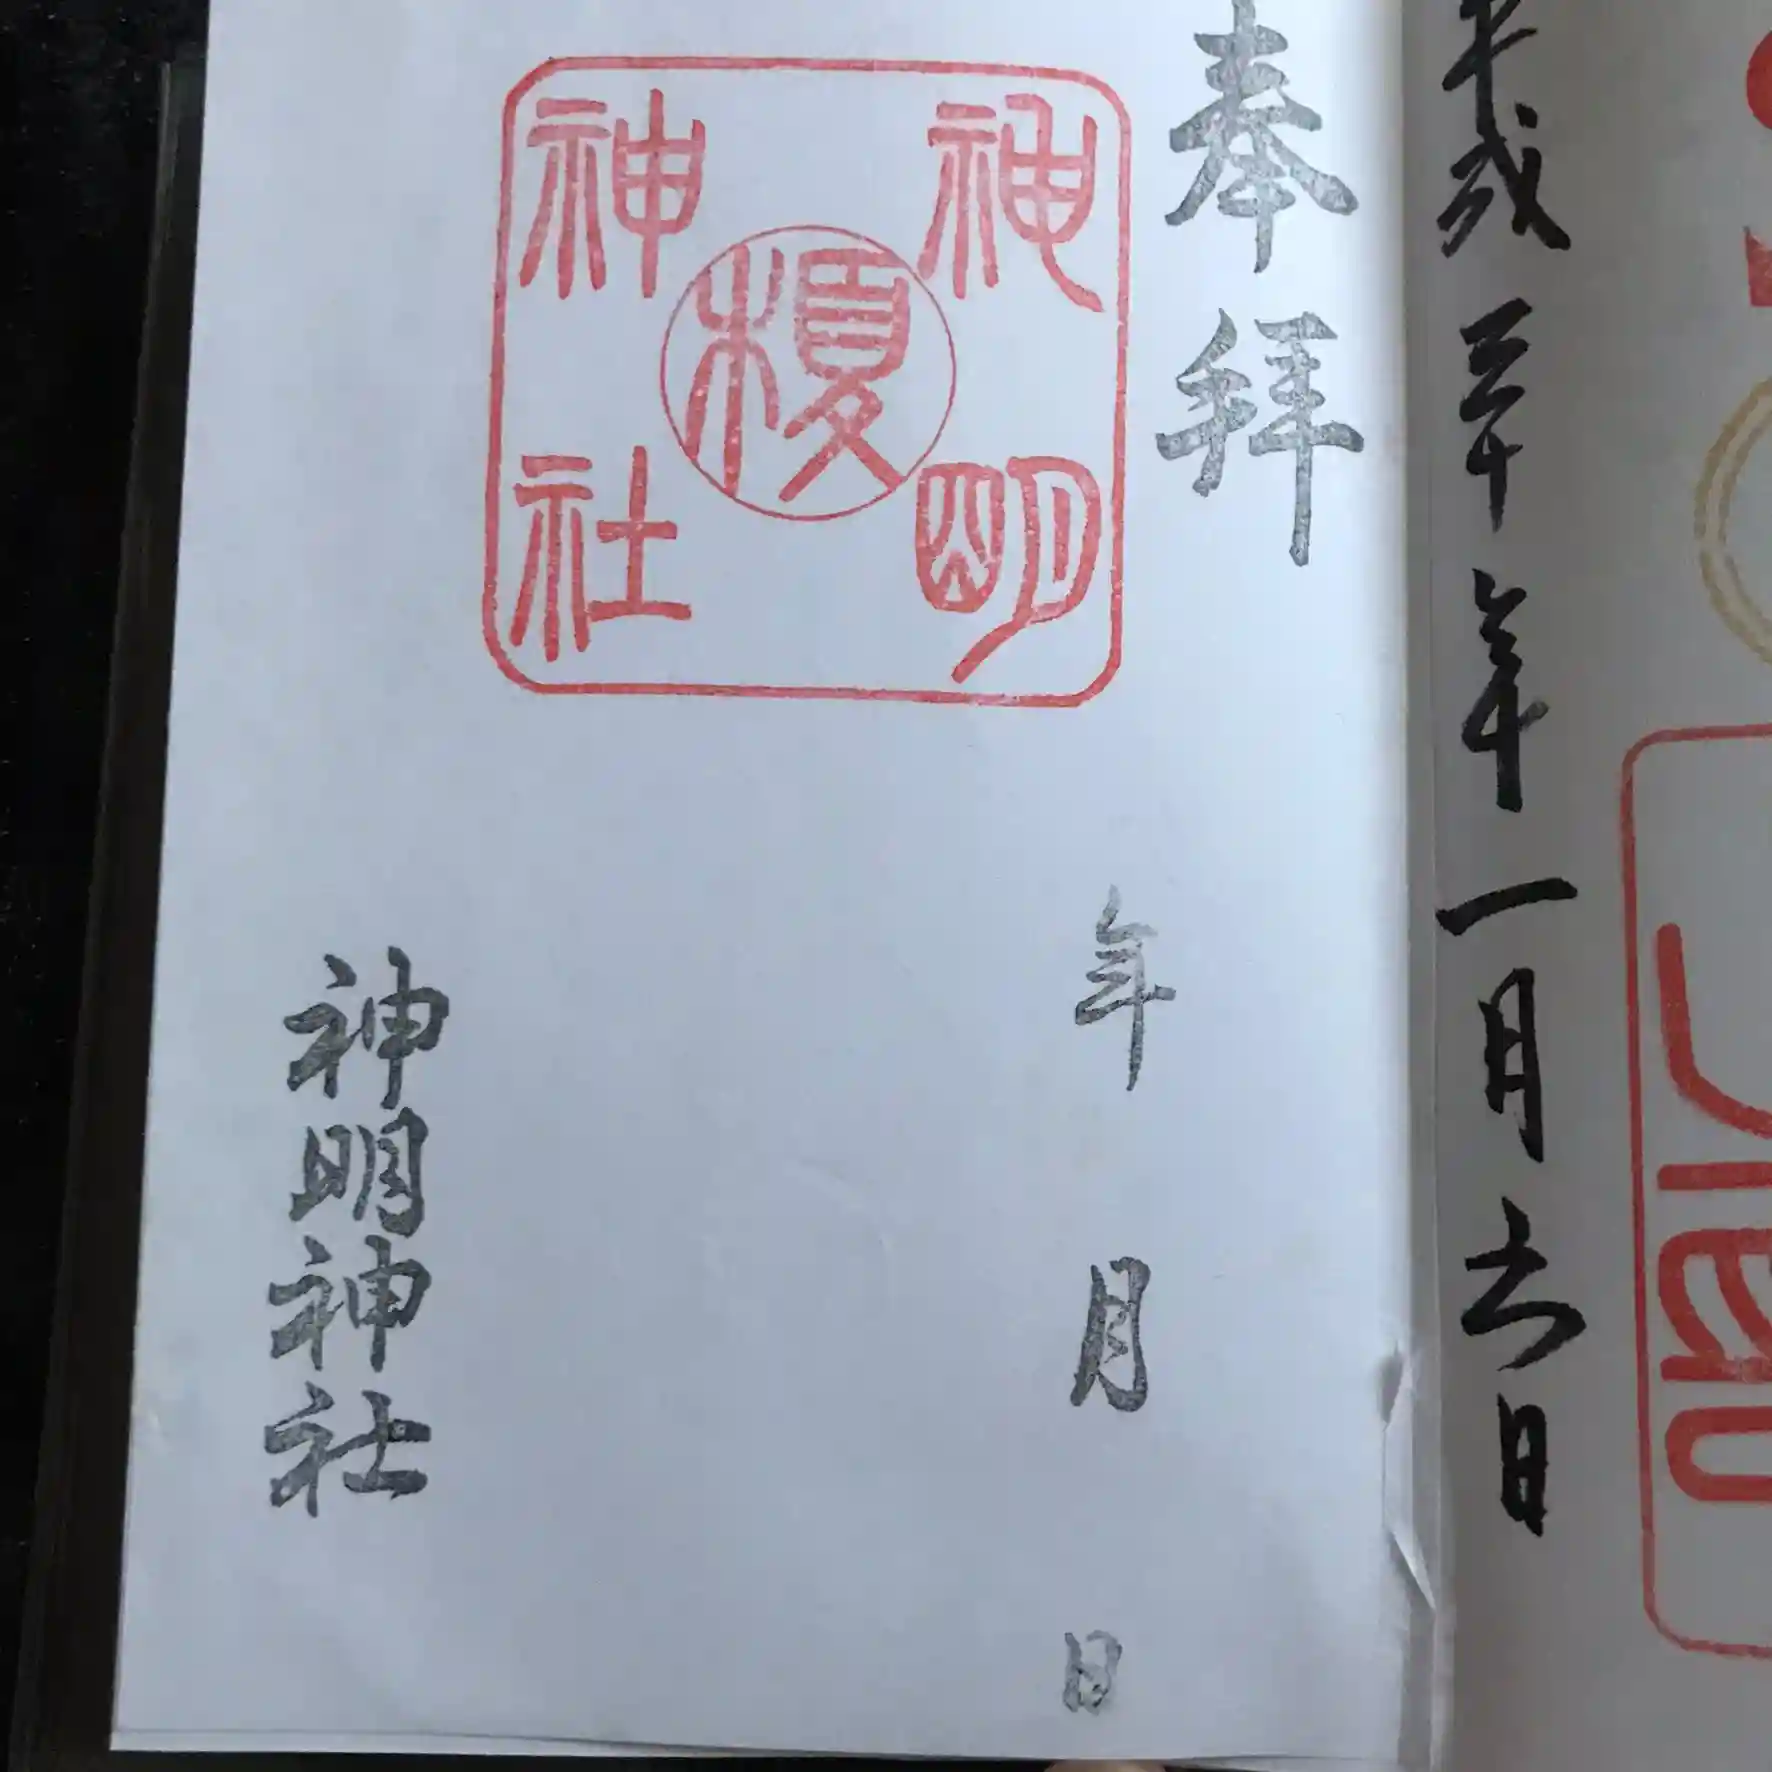 平成三十年一月六日
奉拝
年 月 日
神明
榎
神社
神明神社